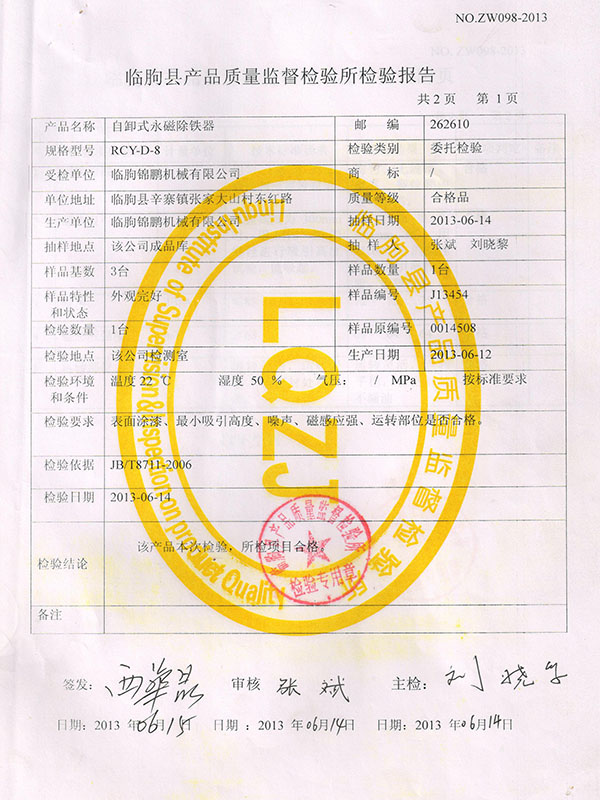 NO.ZW098-2013
临朐县产品质量监督检验所检验报告
共 2 页 第 1 页
产品名称 自卸式永磁除铁器 邮 编 262610
规格型号 RCY-D-8 检验类别 委托检验
受检单位 临朐锦鹏机械有限公司 商 标 /
单位地址 临朐县辛寨镇张家大山村东红路 质量等级 合格品
生产单位 临朐锦鹏机械有限公司 抽样日期 2013-06-14
抽样地点 该公司成品库 抽 样 人 张斌 刘晓黎
样品基数 3台 样品数量 1台
样品特性和状态 外观完好 样品编号 J13454
检验数量 1台 样品原编号 0014508
检验地点 该公司检测室 生产日期 2013-06-12
检验环境和条件 温度 22 ℃ 湿度 50 % 气压: / MPa 按标准要求
检验要求 表面涂漆、最小吸引高度、噪声、磁感应强、运转部位是否合格。
检验依据 JB/T8711-2006
检验日期 2013-06-14
检验结论 该产品本次检验，所检项目合格。
备注
LQZJ
临朐县产品质量监督检验所
检验专用章
签发: 审核 张斌 主检: 刘晓
日期: 2013 年06月15日 日期 : 2013 年06月14日 日期: 2013 年06月14日